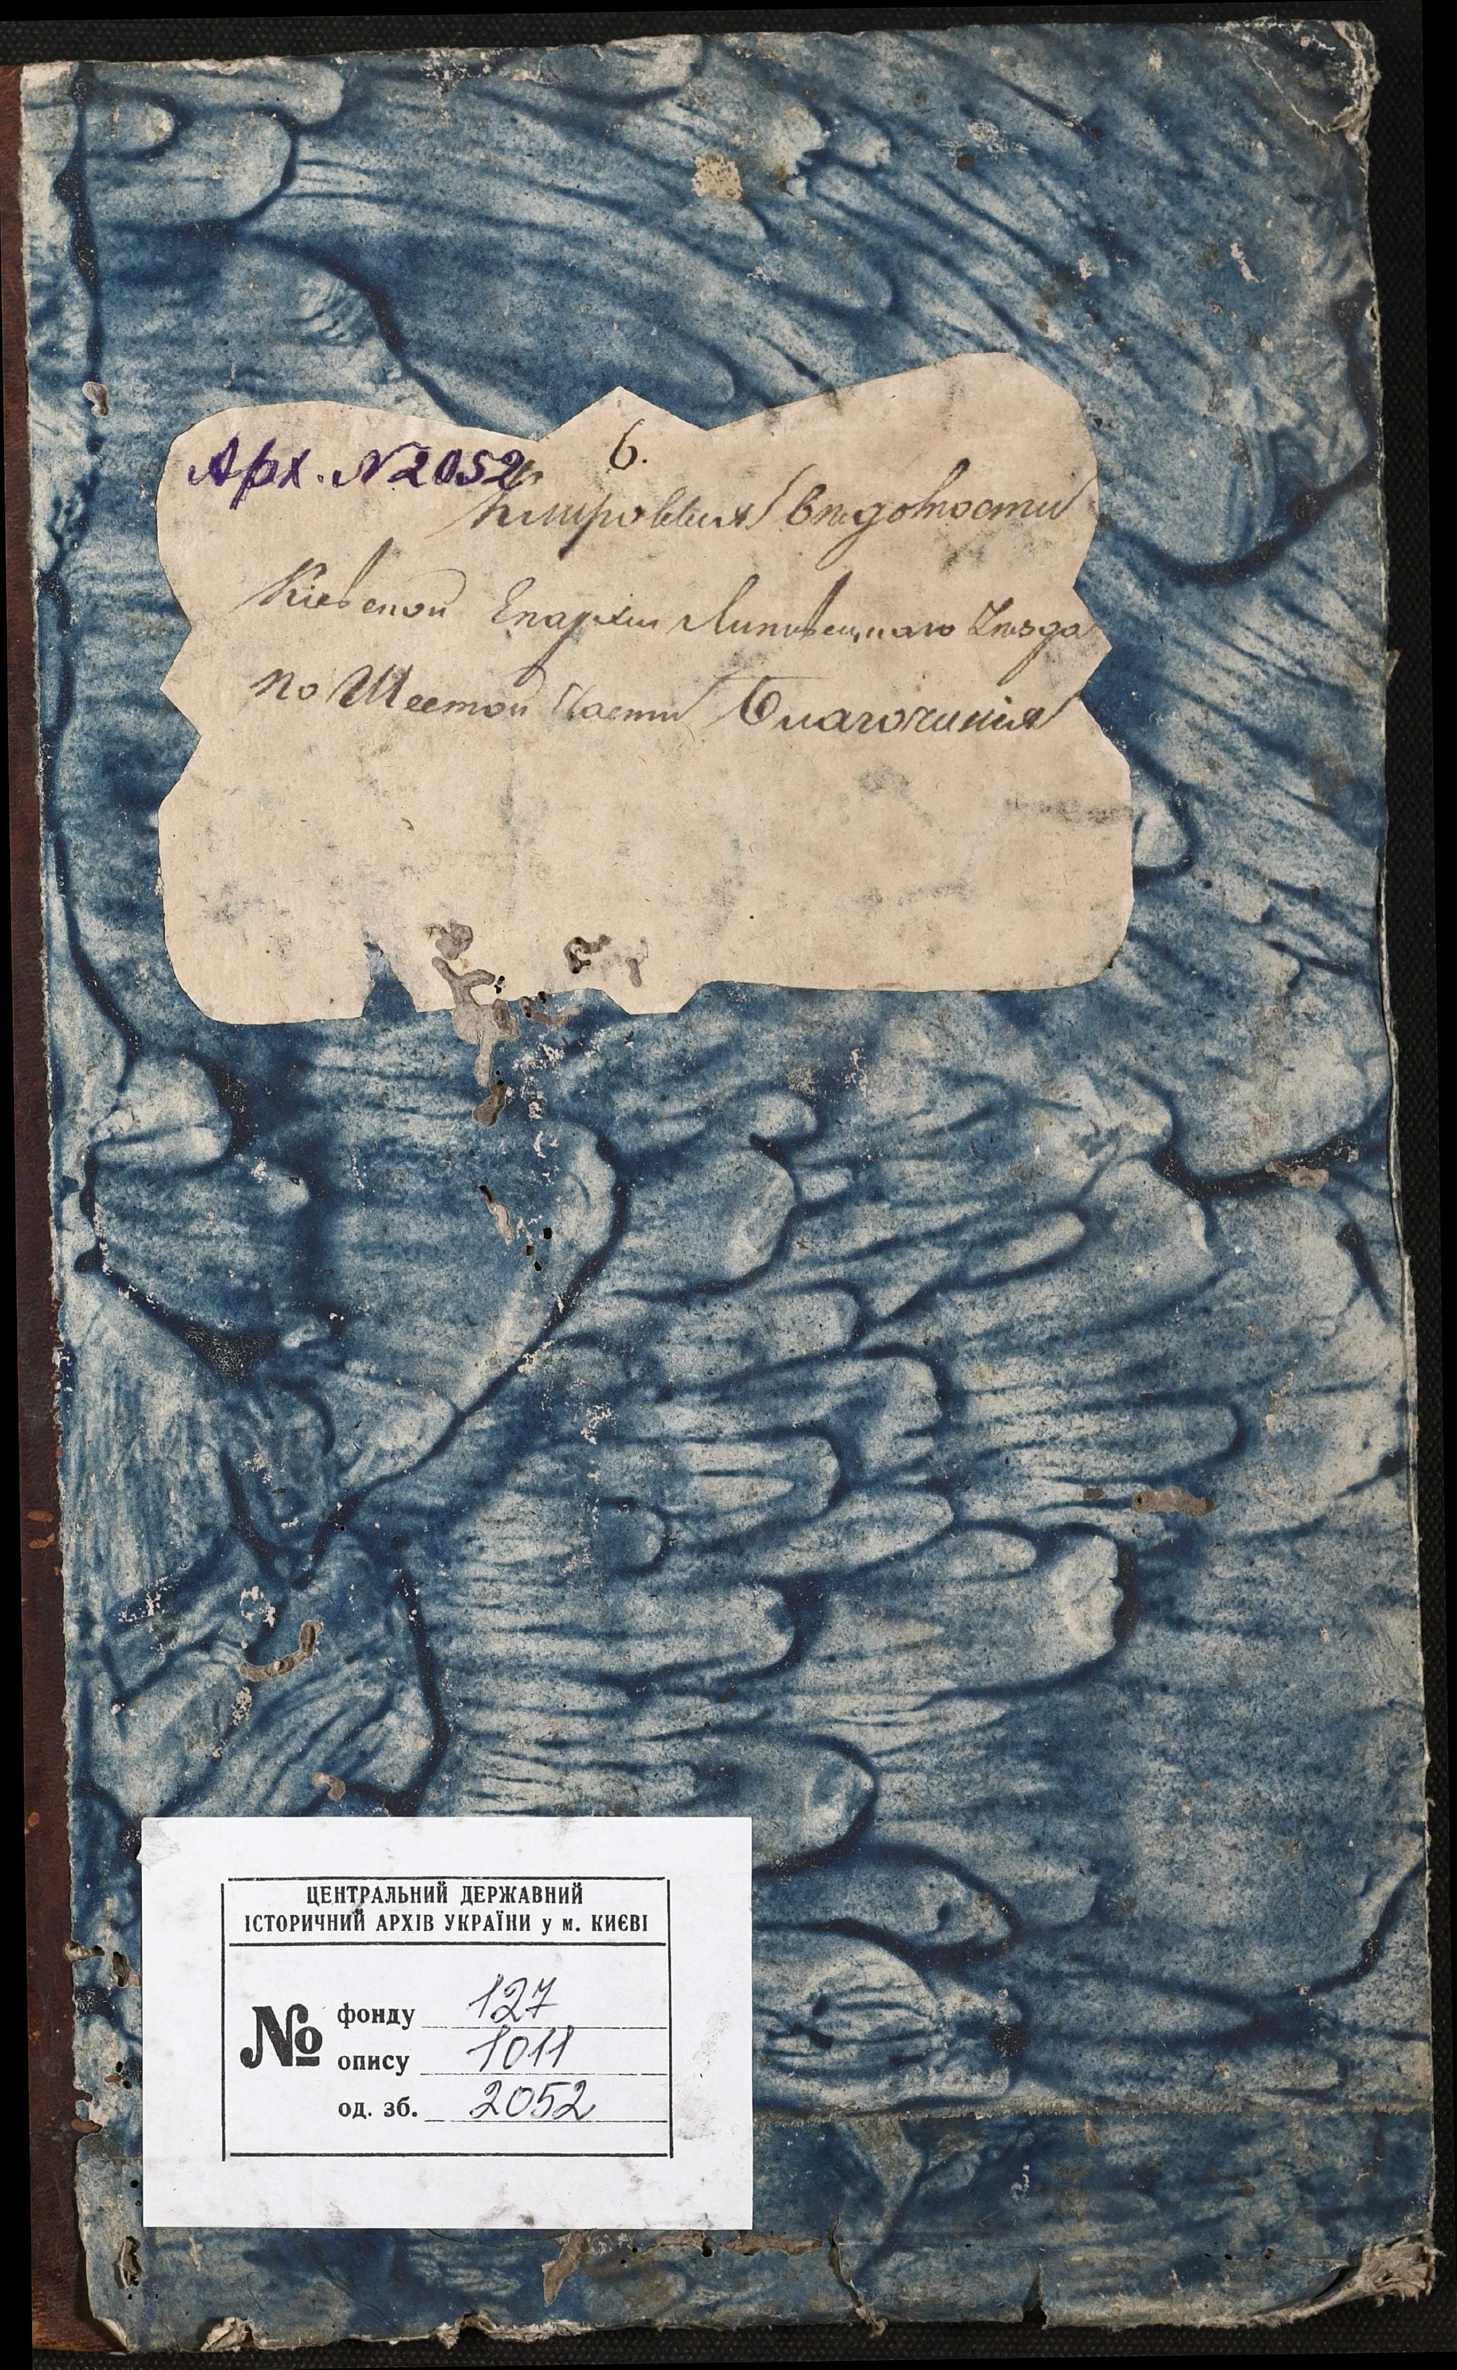 6.
Арх. №2052
Клировыя Вѣдомости
Кіевской Епархіи Липовецкаго Уѣзда
по Шестой Части Благочинія
ЦЕНТРАЛЬНИЙ ДЕРЖАВНИЙ
ІСТОРИЧНИЙ АРХІВ УКРАЇНИ у м. КИЄВІ
№
фонду 127
опису 1011
од. зб. 2052